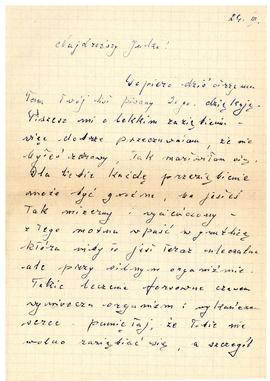 24. III.
Najdroższy Jurku!
Dopiero dziś otrzyma
łam Twój list pisany 20 go. dziękuję.
Piszesz mi o lekkim zaziębieniu
więc dobrze przeczuwałam, że nie
byłeś zdrowy, tak martwiłam się.
Dla Ciebie każde przeziębienie
może być groźne, bo jesteś
tak mizerny i wyniszczony –
z tego można wpaść w gruźlicę
która niby to jest teraz uleczalna
ale przy silnym organizmie.
Takie leczenie forsowne czasem
wyniszcza organizm i wykańcza
serce – pamiętaj, że Tobie nie
wolno zaziębiać się, a szczegól